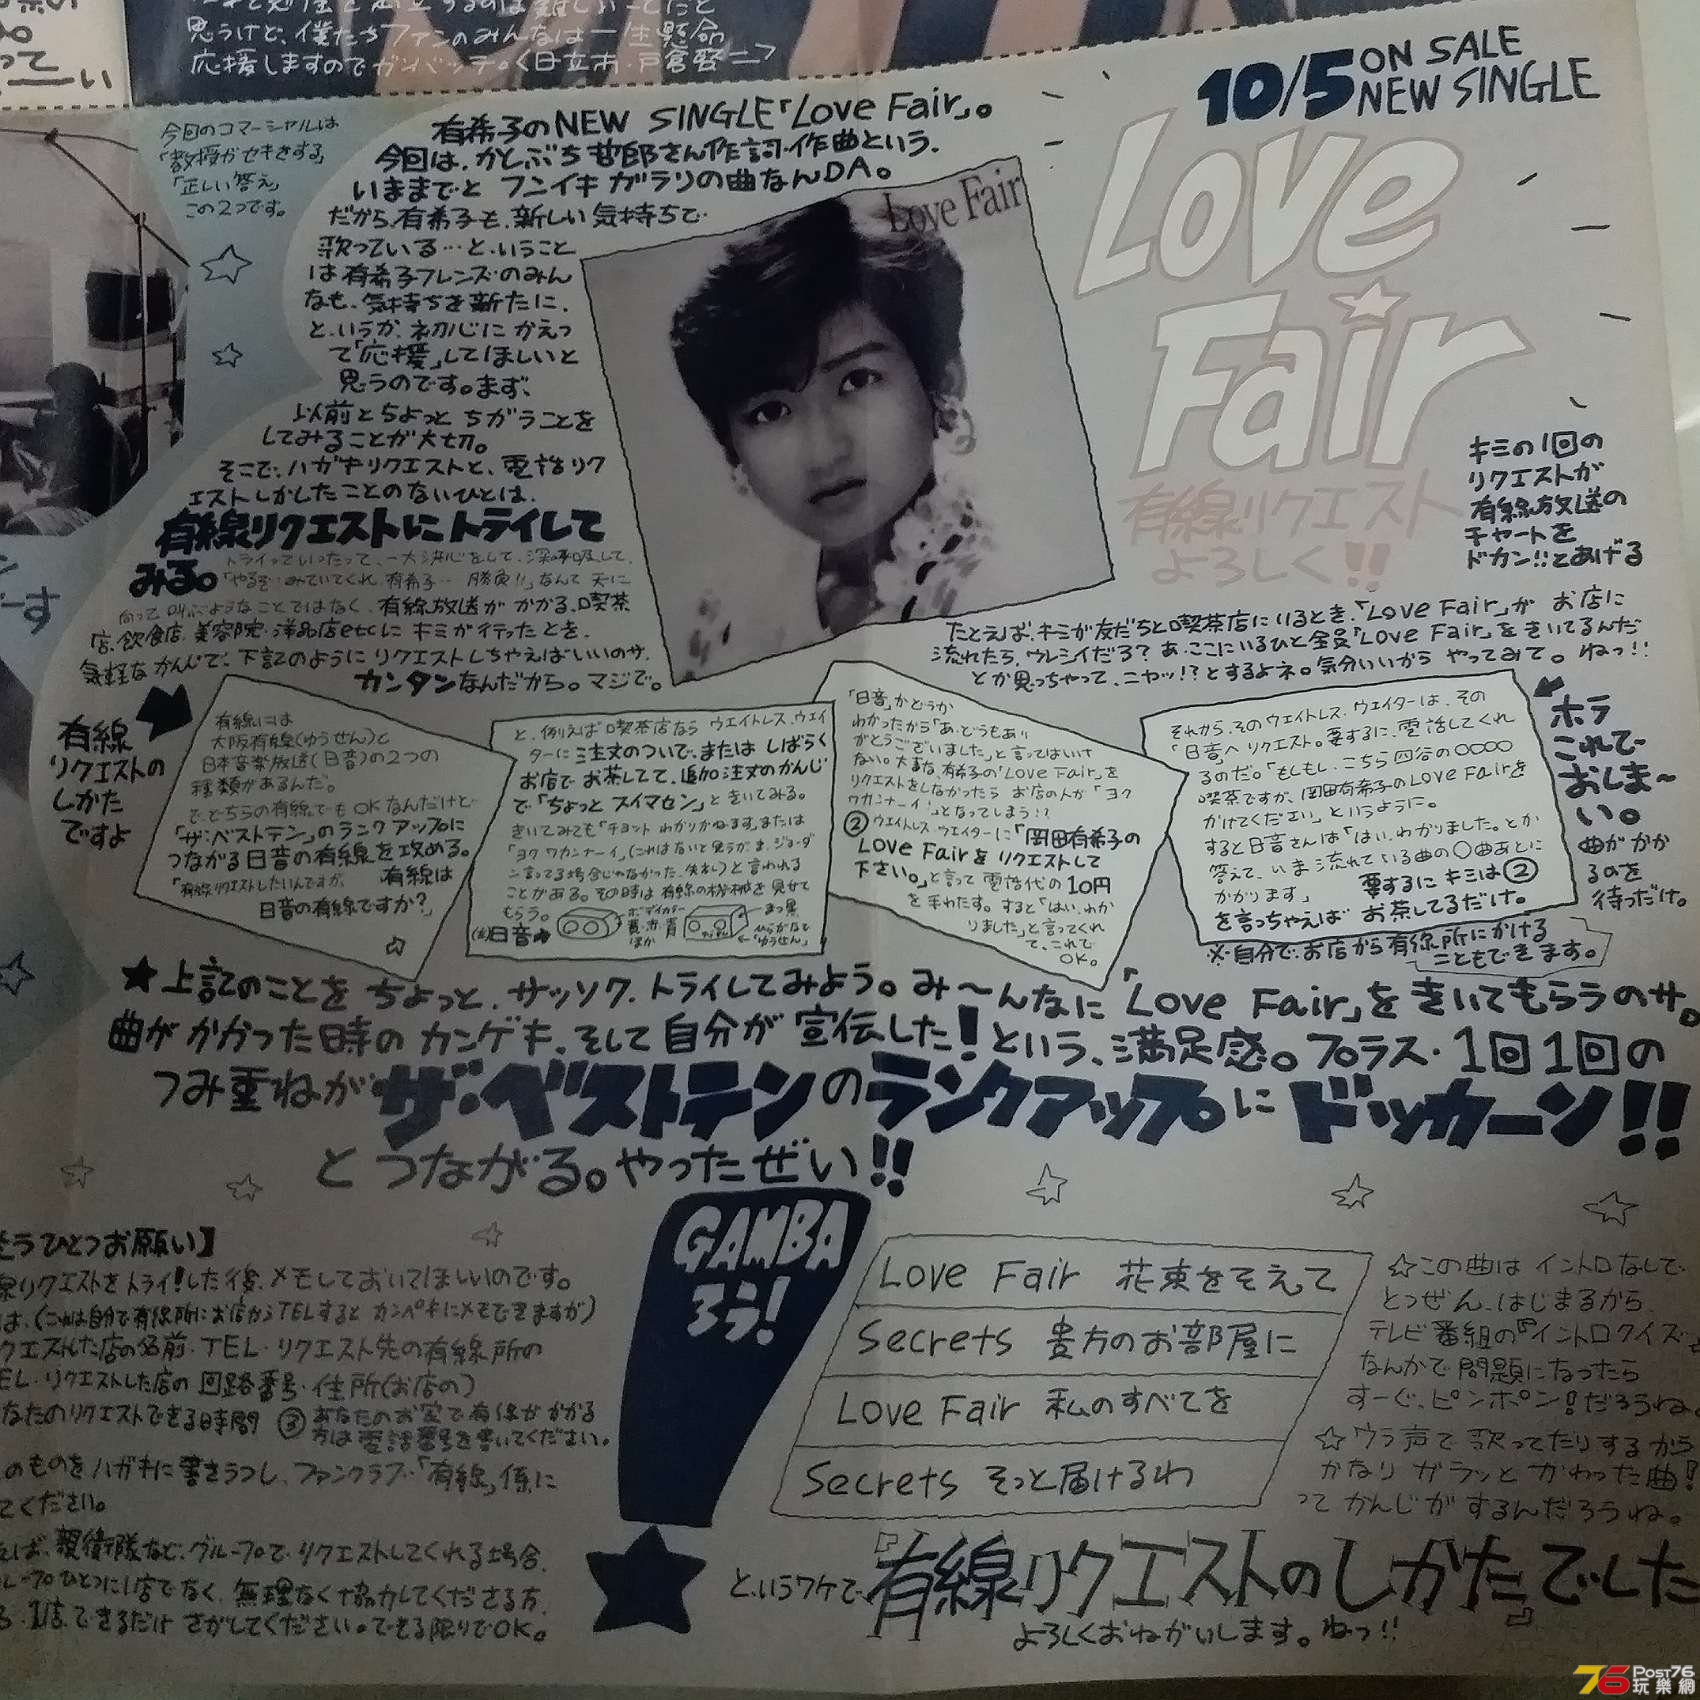 思うけど、僕たちファンのみんなは一生懸命
応援しますのでガンバッテ。<日立市・戸倉
今回のコマーシャルは
「教授がセキをする」
「正しい答え」
この2つです。
10/5 ON SALE
NEW SINGLE
Love
Fair
有線リクエスト
よろしく!!
有希子のNEW SINGLE「Love Fair」。
今回は、かとぶち哲郎さん作詞・作曲という、
いままでと フンイキ ガラリの曲なんDA。
だから、有希子も、新しい気持ちで
歌っている…と、いうこと
は有希子フレンズのみん
なも、気持ちを新たに、
と、いうか、初心にかえっ
て「応援」してほしいと
思うのです。まず、
以前とちょっと ちがうことを
してみることが大切。
そこで、ハガキリクエストと、電話リク
エストしかしたことのないひとは、
有線リクエストにトライして
みる。
トライっていったって、一大決心をして、深呼吸して、
「やるぞ…みていてくれ、有希子… 勝負!!」なんて 天に
向って 叫ぶようなことではなく、有線放送が かかる、喫茶
店、飲食店、美容院、洋品店etcに キミが行ったとき、
気軽なかんじで、下記のように リクエストしちゃえばいいのサ。
カンタンなんだから。マジで。
Love Fair
キミの1回の
リクエストが
有線放送の
チャートを
ドカン!!とあげる
たとえば、キミが友だちと喫茶店にいるとき、「Love Fair」が お店に
流れたら、ウレシイだろ? あ、ここにいるひと全員「Love Fair」をきいてるんだ
とか思っちゃって、ニヤッ!?とするよネ。気分いいから やってみて。ねっ!!
有線
リクエストの
しかた
ですよ
有線には
大阪有線(ゆうせん)と
日本音楽放送(日音)の2つの
種類があるんだ。
で、どちらの有線でも OKなんだけど
「ザ・ベストテン」のランクアップに
つながる日音の有線を攻める。
「有線リクエストしたいんですが、 有線は
日音の有線ですか?」
と、例えば喫茶店なら ウエイトレス、ウエイ
ターに注文のついで、または しばらく
お店で お茶してて、追加注文のかんじ
で「ちょっと スイマセン」ときいてみる。
きいてみても「チョット わかりかねます」または
「ヨク ワカンナーイ」(これはないと思うが ま、ジョーダ
ン言ってる場合じゃなかった、失礼)と言われる
ことがある。その時は有線の機械を見せて
もらう。
日音
ボディカラー
黄・赤・青
ほか
まっ黒
「ゆうせん」
「日音」かどうか
わかったから「あ、どうもあり
がとうございました」と言ってはいけ
ない。大事な、有希子の「Love Fair」を
リクエストをしなかったら お店の人が「ヨク
ワカンナーイ!」となってしまう!?
②ウエイトレス・ウエイターに「岡田有希子の
Love Fairを リクエストして
下さい。」と言って 電話代の10円
を 手わたす。すると「はい、わか
りました」と言ってくれ
て、これで
OK。
それから、そのウェイトレス・ウエイターは、その
「日音」へ リクエスト。要するに、電話してくれ
るのだ。「もしもし、こちら四谷の〇〇〇〇
喫茶ですが、岡田有希子のLove Fairを
かけてください」というように。
すると日音さんは「はい、わかりました。とか
答えて、いま流れている曲の〇曲あとに
かかります」 要するに キミは②
を言っちゃえば お茶してるだけ。
※自分で、お店から有線所にかける
こともできます。
ホラ
これで
おしま〜
い。
曲がかか
るのを
待つだけ。
★上記のことを ちょっと、サッソク、トライしてみよう。み〜んなに「Love Fair」をきいてもらうのサ。
曲がかかった時の カンゲキ、そして自分が 宣伝した!という、満足感。プラス・1回1回の
つみ重ねが ザ・ベストテンのランクアップに ドッカーン!!
と つながる。やったぜい!!
GAMBA
ろう!
Love Fair 花束をそえて
Secrets 貴方のお部屋に
Love Fair 私のすべてを
Secrets そっと届けるわ
☆この曲は イントロなしで
とつぜん、はじまるから
テレビ番組の『イントロクイズ』
なんかで問題になったら
すーぐ、ピンポン!だろうね。
☆ウラ声で 歌ってたりするから
かなり ガラッと かわった曲!
って かんじが するんだろうね。
もうひとつお願い】
リクエストをトライ!した後、メモしておいてほしいのです。
は、(これは自分で有線所にお店からTELすると カンペキにメモできますが)
クエストした店の名前・TEL・リクエスト先の有線所の
EL・リクエストした店の 回路番号・住所(お店の)
なたのリクエストできる時間 ③あなたのお家で有線がかかる
方は 電話番号を書いてください。
のものをハガキに書きうつし、ファンクラブ・「有線」係に
てください。
ば、親衛隊など、グループで リクエストしてくれる場合、
ループひとつに1店でなく、無理なく協力してくださる方、
できるだけ さがしてください。できる限りでOK。
と、いうワケで『有線リクエストのしかた』でした
よろしくおねがいします。ねっ!!
76 Post76
玩樂網